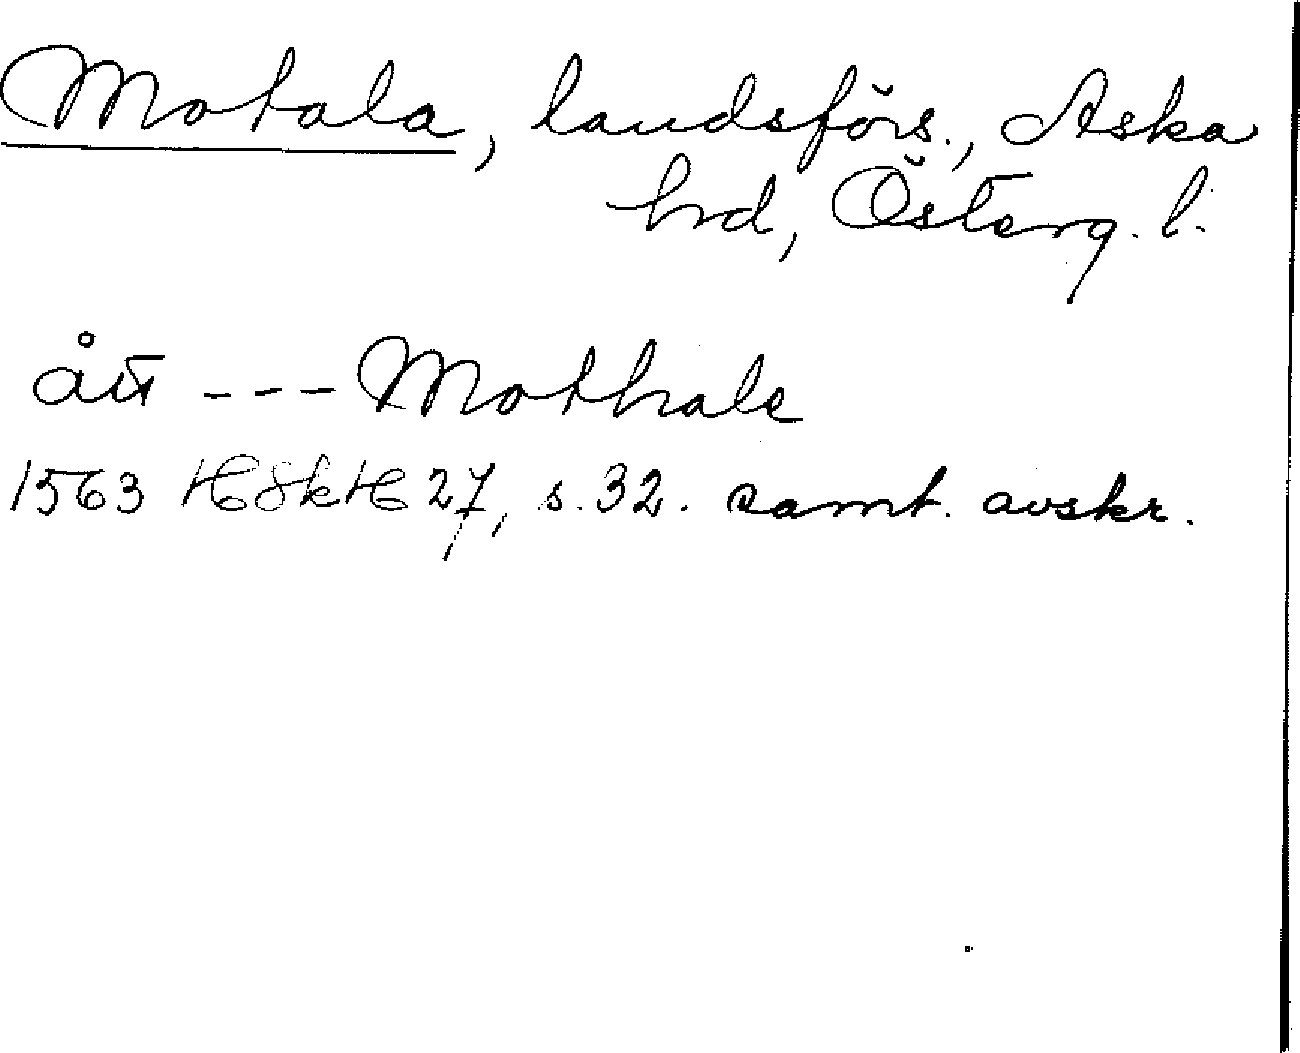 Motala, landsförs., Aska
hrd, Österg. l.
ått --- Mothale
1563 HSkH 27, s. 32. samt. avskr.